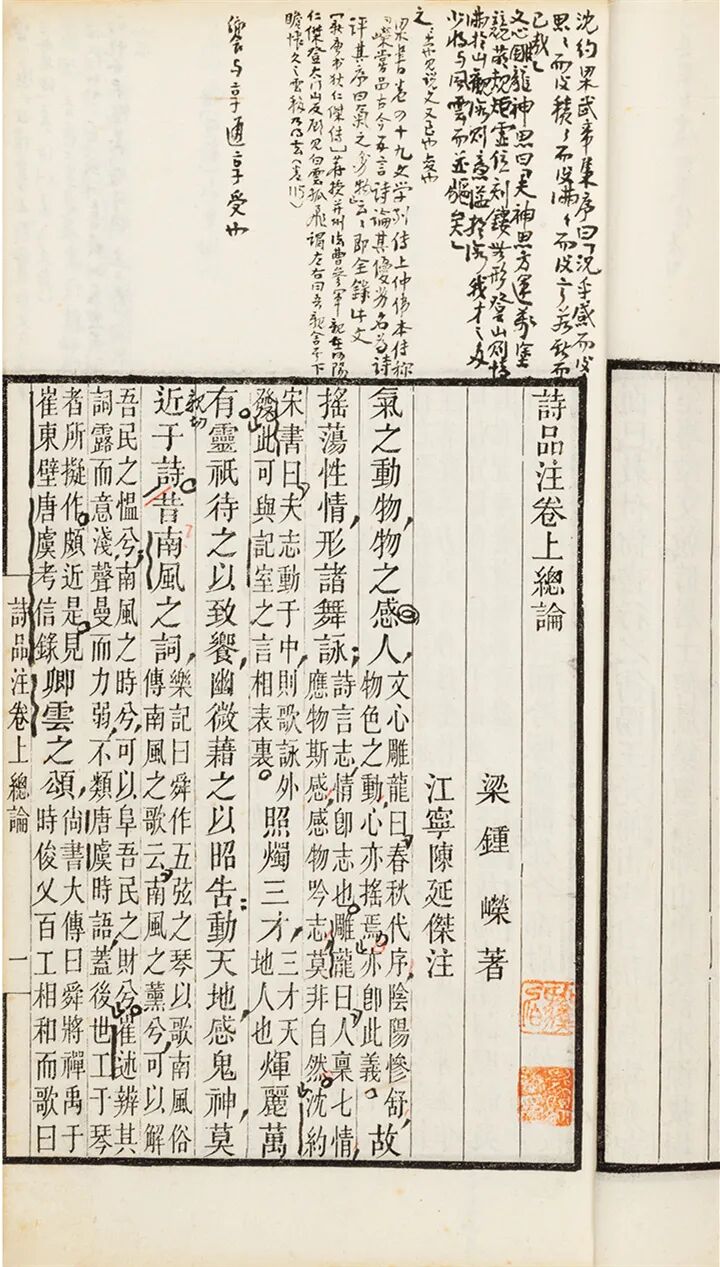 沈約梁武帝集序曰「況乎感而後
思思而後積積而後滿滿而後言若斯而
已哉」
文心雕龍神思曰「夫神思方運萬塗
競萌規矩虛位刻鏤無形登山則情
滿於山觀海則意溢於海我才之多
少將與風雲而並驅矣」
梁書卷四十九文学列传上仲偉本传称
「嶸嘗品古今五言詩論其優劣名为詩
評其序曰氣之動物云云」即全錄此文
〔新唐书狄仁傑傳〕荐授并州法曹參軍親在河陽
仁傑登太行山反顾見白雲孤飛謂左右曰吾親舍其下
瞻悵久之雲移乃得去(卷115)
饗与享通享受也
詩品注卷上總論
梁鍾嶸著
江寧陳延傑注
氣之動物,物之感人,
文心雕龍曰春秋代序陰陽慘舒,
物色之動,心亦搖焉,亦卽此義。
故
搖蕩性情,形諸舞詠;
詩言志,情卽志也。雕龍曰,人稟七情,
應物斯感,感物吟志,莫非自然。沈約
宋書曰,夫志動于中,則歌詠外
發,此可與記室之言相表裏。
照燭三才,
三才天
地人也
煇麗萬
有靈祇待之以致饗,幽微藉之以昭告;動天地,感鬼神,莫
親切
近于詩。昔南風之詞,
樂記曰舜作五弦之琴以歌南風俗
傳南風之歌云,南風之薰兮,可以解
吾民之慍兮,南風之時兮,可以阜吾民之財兮。崔述辨其
詞露而意淺聲曼而力弱,不類唐虞時語,蓋後世工于琴
者所擬作。頗近是。見
崔東壁唐虞考信錄
卿雲之頌,
尙書大傳曰舜將禪禹于
時俊乂百工相和而歌曰
詩品注卷上總論 一